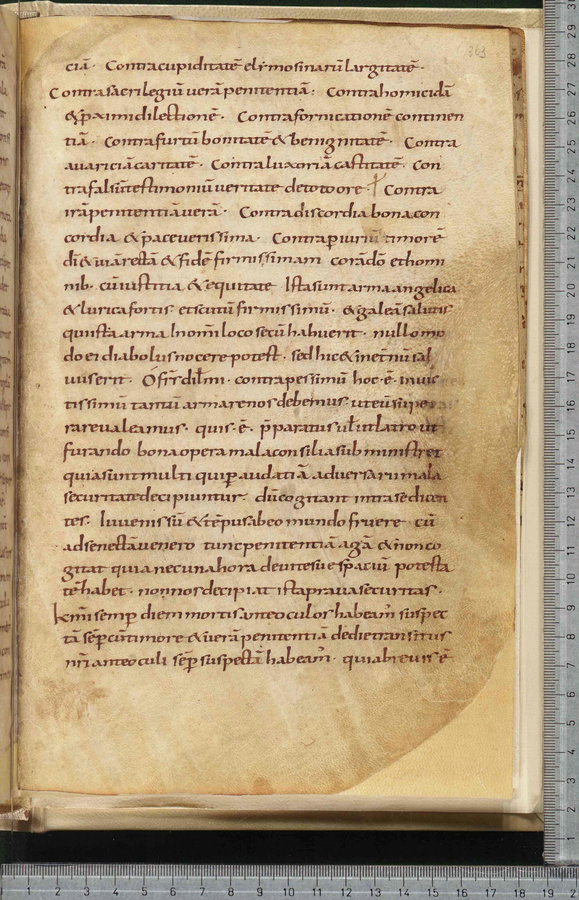 363
ciā. Contra cupiditatē elymosinarū largitatē.
Contra sacrilegiū verā penitentiā. Contra homicidā
& pximi dilectionē. Contra fornicationē continen
tiā. Contra furtū bonitatē & benignitatē. Contra
avariciā caritatē. Contra luxoriā castitatē. Con
tra falsū testimoniū veritate de toto ore. Contra
irā penitentiā verā. Contra discordia bona con
cordia & pace verissima. Contra piuriū timorē
dī & viā rectā & fidē firmissimam corā dō et homi
nib. cū iustitia & equitate Ista sunt arma angelica
& lurica fortis et scutū firmissimū. & galeā salutis
qui ista arma In om̄i loco secū habuerit. nullo mo
do ei diabolus nocere potest. sed hic & in et̄nū sal
vus erit. O frs̄ dil̄mi. contra pessimū hoc ē. invic
tissimū tantū arma renos debemus. ut eū supe
rare valeamus. quis ē. p̄paratus ul̄ ut latro ut
furando bona opera mala consilia subministret
quia sunt multi qui p audatiā adversarii mala
securitate decipiuntur dū cogitant intra se dicen
tes. Iuvenis sū & tēpus abeo mundo fruere cū
ad senectā venero tunc penitentiā agā & non co
gitat quia nec una hora de vite sue spaciū potesta
tē habet. non nos decipiat ista prava securitas.
Km̄i semp diem mortis ante oculos habeam̄ suspec
tā sēp cū timore & verā penitentiā de die transitus
nr̄i ante oculi sēp suspectā habeam̄. quia brevis ē